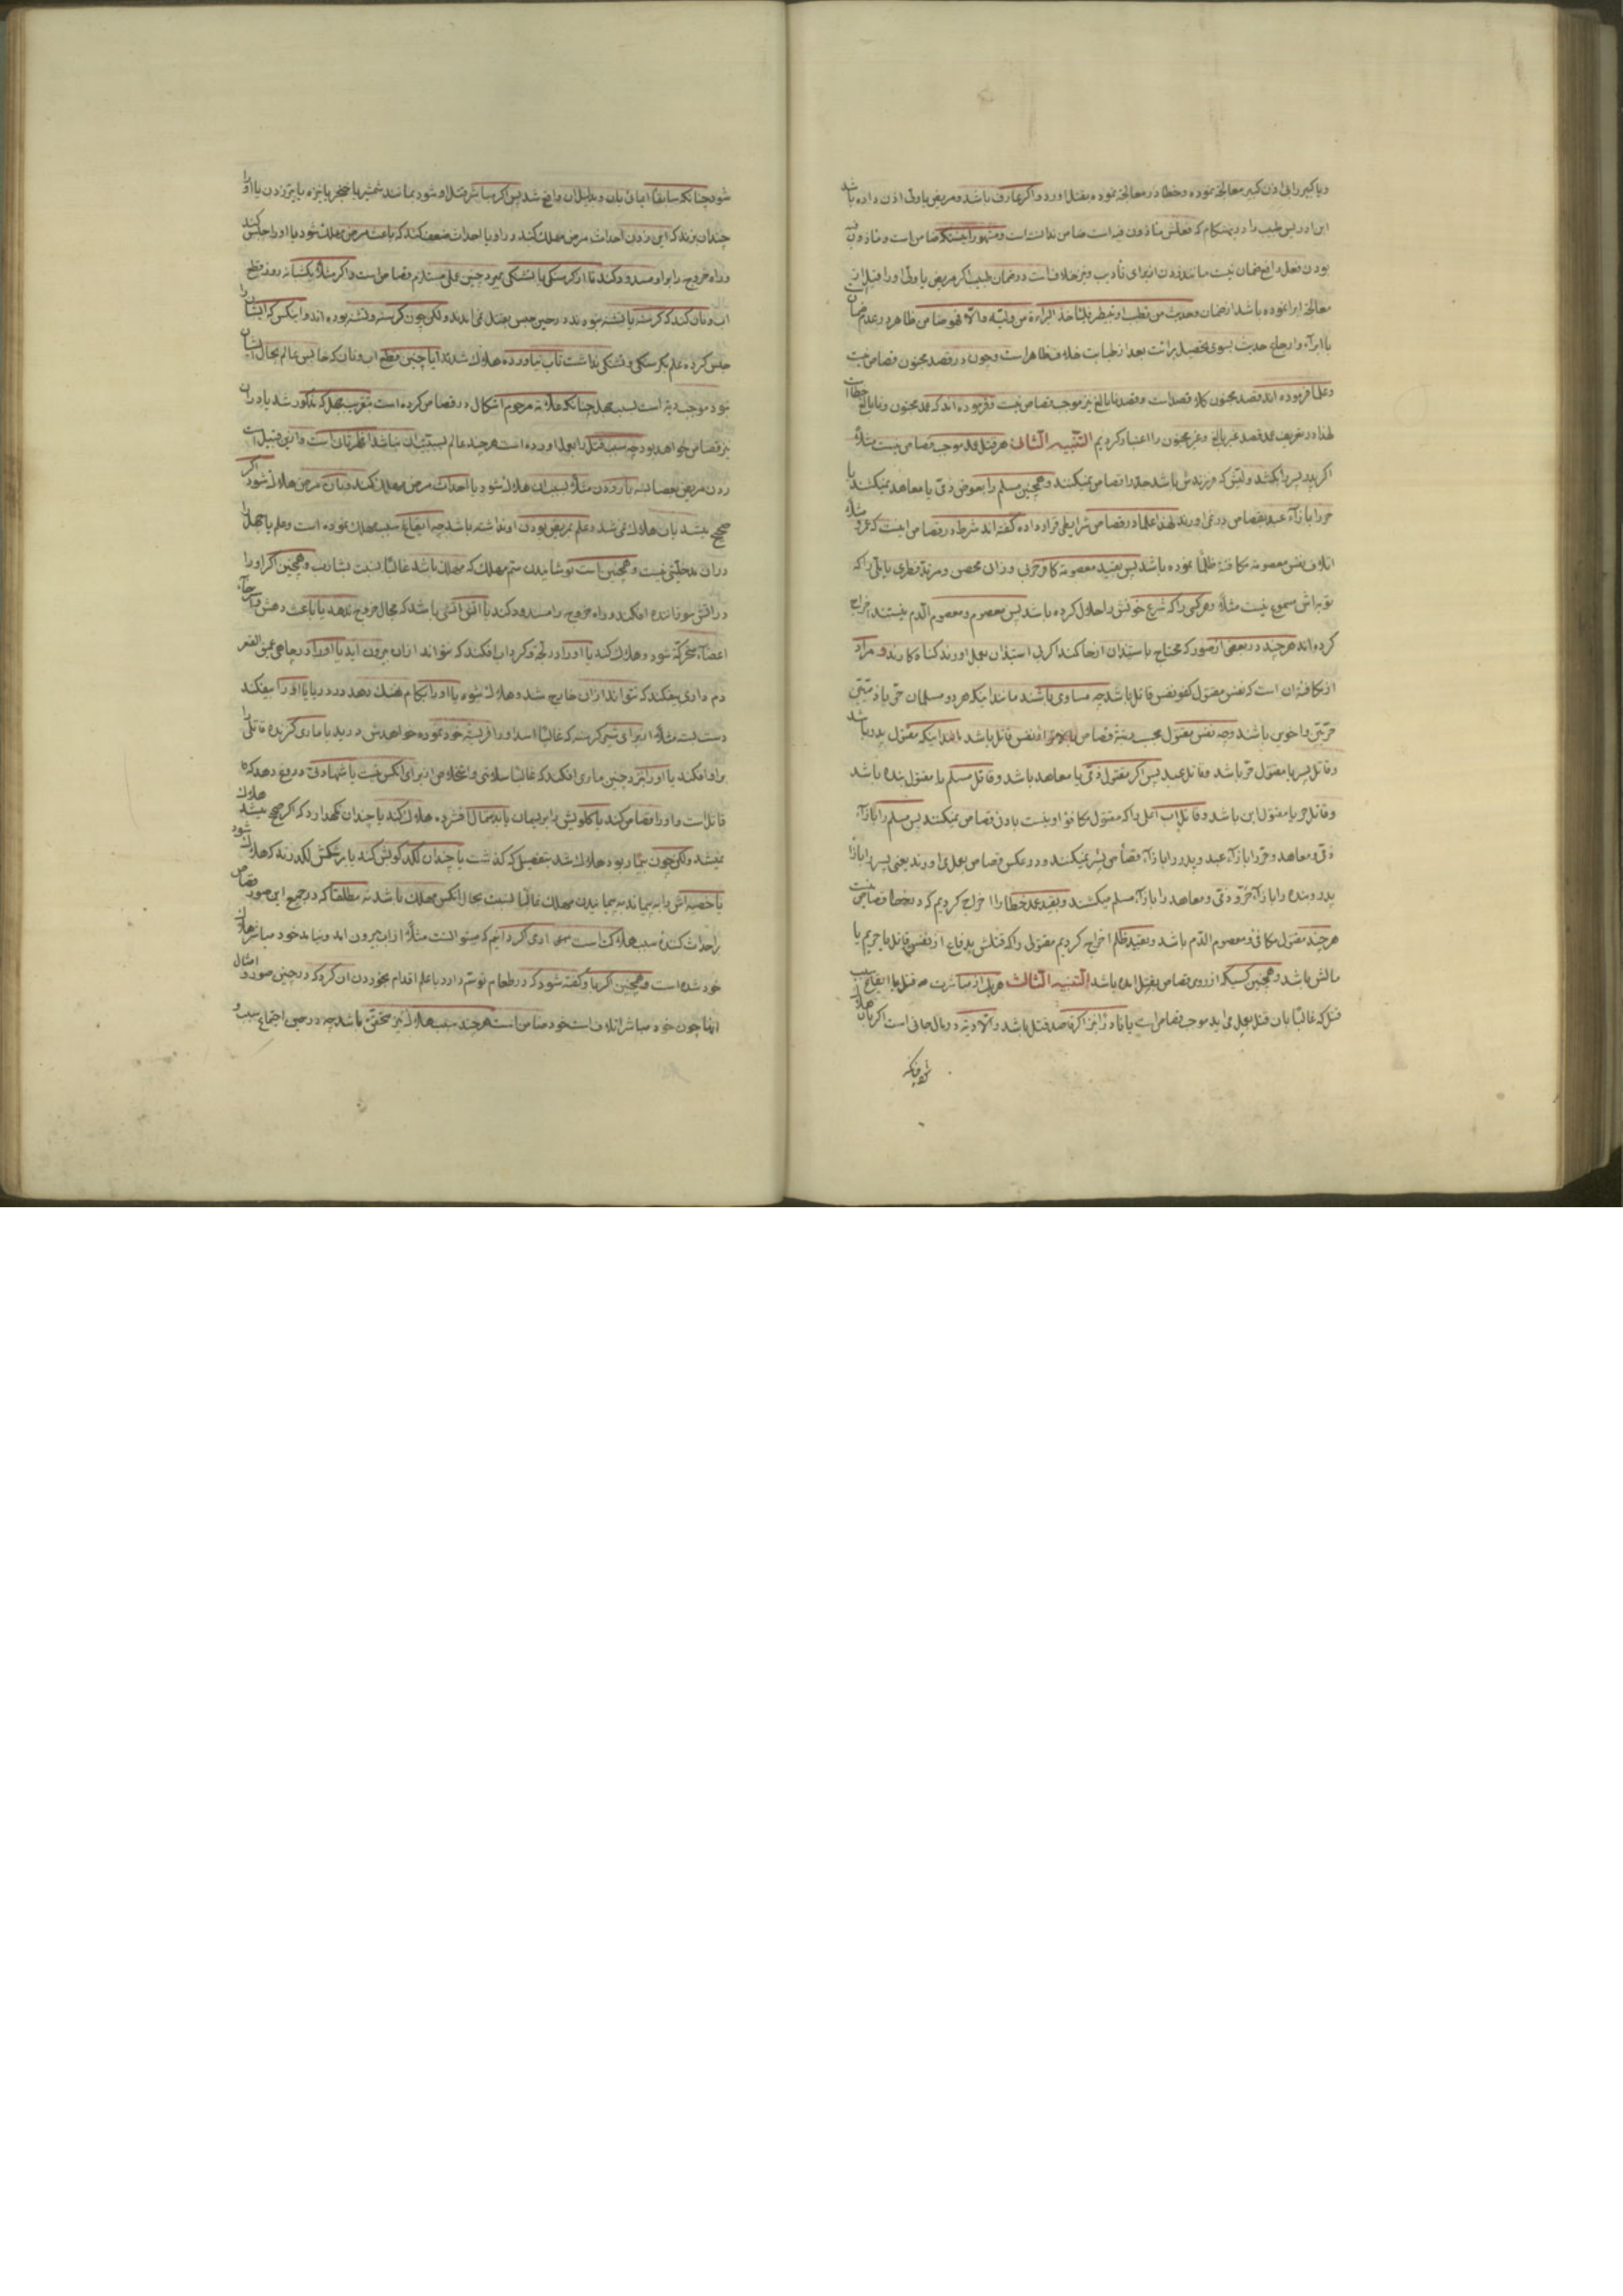 ویا کبیر را بی اذن کبیر معالجهٔ نموده وخطا در معالجهٔ نموده بقتل اورد واکر عارف باشد ومریض یا ولی اذن داده باشد
ابن ادریس طبیب را در هنکام که فعلش ماذون فیه است ضامن ندانسته است ومشهور اینستکه ضامن است وماذون فیه
بودن فعل رافع ضمان نیست مانند زدن از برای تأدیب ونیز خلافست در ضمان طبیب اکر مریض یا ولی او را قبل از
معالجهٔ ابرا نموده باشد از ضمان وحدیث من تطبب او تبیطر فلیأخذ البراءة من ولیّه والّا فهو ضامن ظاهر در عدم ضمان
با ابرآء وارجاع حدیث بسوی تحصیل برائت بعد از طبابت خلاف ظاهر است وچون در قصد مجنون قصاص نیست
وعلما فرموده اند قصد مجنون کلا قصد است وقصد نابالغ نیز موجب قصاص نیست وفرموده اند که عمد مجنون ونابالغ خطا است
لهذا در تعریف عمد قصد غیر بالغ وغیر مجنون را اعتبار کردیم التنبیه الثانی هر قتل عمد موجب قصاص نیست مثلاً
اکر پدر پسر را بکشد ولیّش که فرزندش باشد جدّ را قصاص نمیکنند وهمچنین مسلم را بعوض ذمّی یا معاهد نمیکشند یا
حر را بازآء عبد بقصاص در نمی اورند لهذا علما در قصاص شرایطی قرار داده کفته اند شرط در قصاص اینست که عرفی مثلاً
اتلاف نفس معصومهٔ مکافئهٔ ظلمًا نموده باشد پس بقید معصومهٔ کافر حربی وزانی محصن ومرتدّ فطری یا ملّی را که
توبه اش مسموع نیست مثلاً وهر کس را که شرع خونش را حلال کرده باشد پس معصوم ومعصوم الدّم نیستند اخراج
کرده اند هر چند در بعضی از صور که محتاج باستیذان از حاکمند اکر بی استیذان بعمل اورند کناه کارند ومراد
از مکافئهٔ ان است که نفس مقتول کفو نفس قاتل باشد چه مساوی باشند مانند اینکه هر دو مسلمان حرّ یا ذمّیّین
حرّین واخوین باشند وچه نفس مقتول بحسب رتبهٔ قصاص بالاتر از نفس قاتل باشد مانند اینکه مقتول پدر باشد
وقاتل پسر یا مقتول حرّ باشد وقاتل عبد پس اکر مقتول ذمّی یا معاهد باشد وقاتل مسلم یا مقتول بنده باشد
وقاتل حر یا مقتول ابن باشد وقاتل اب انها را که مقتول مکافؤ او نیست بادن قصاص نمیکنند پس مسلم را بازآء
ذمّی ومعاهد وحرّ را بازآء عبد وپدر را بازآء قصاص پسر نمیکنند ودر عکس قصاص بعمل می اورند یعنی پسر را بازآء
پدر وبنده را بازآء حرّ وذمّی ومعاهد را بازآء مسلم میکشند وبقید عمد خطا را اخراج کردیم که در خطا قصاص نیست
هر چند مقتول مکافی ومعصوم الدّم باشد وبقید ظلم اخراج کردیم مقتولی را که قتلش بدفاع از نفس قاتل یا حریم یا
مالش باشد وهمچنین کسیکه از روی قصاص بقتل امده باشد التنبیه الثالث هر یک از مباشرت به قتل یا ایقاع سبب
قتل که غالبًا بان قتل بعمل می اید موجب قصاص است یا نادرًا نیز اکر قاصد قتل باشد والّا دیه در مال جانی است اکر بان هلاک
شود چنانکه
شود چنانکه سابقًا ایمائی بان وبدلیل ان واقع شد پس اکر مباشر قتل او شود بمانند شمشیر یا خنجر یا نیزه یا تیر زدن یا او را
چندان بزند که این زدن احداث مرض مهلک کند در او یا احداث ضعف کند که باعث مرض مهلک شود یا او را حبس کند
وراه خروج را بر او مسدود کند تا از کرسنکی یا تشنکی بمیرد چنین عملی مستلزم قصاص است واکر مثلاً یکشبانه روز قطع
اب ونان کند که کرسنه یا تشنه نبوده ند در حین حبس بقتل نمی امدند ولکن چون کرسنه وتشنه بوده اند واینکس که ایشان را
حبس کرده علم بکرسنکی وتشنکی نداشت تاب نیاورده هلاک شدند ایا چنین قطع اب ونان که حابس عالم بحال ایشان
نبود موجب دیه است بسبب جهل چنانکه علامه مرحوم اشکال در قصاص کرده است بتقریب جهل که مذکور شد یا در ان
نیز قصاص خواهد بود چه سبب قتل را بعمل اورده است هر چند عالم بسببیّت ان نباشد اظهر ثانی است واز این قبیل است
زدن مریض بعصا نه بار زدن مثلاً بسبب ان هلاک شود یا احداث مرض مهلک نکند وبان مرض هلاک شود اکر
صحیح میشد بان هلاک نمی شد وعلم بمریض بودن او نداشته باشد چه ایقاع سبب مهلک نموده است وعلم یا جهل را
در ان مدخلیّتی نیست وهمچنین است نوشانیدن سمّ مهلک که مهلک باشد غالبًا نسبت بشارب وهمچنین اکر او را
در اتش سوزاننده افکند وراه خروج را مسدود کند یا اتش اتشی باشد که مجال خروج ندهد یا باعث دهش واسترخآء
اعضآء متحرّکه شود وهلاک کند یا او را در لجّه وکرداب افکند که نتواند از ان بیرون اید یا او را در چاهی عمیق القعر
دم داری بیفکند که نتواند از ان خارج شد وهلاک شود یا او را بکام نهنک دهد در دریا یا او را بیفکند
دست بسته مثلاً از برای شیر کرسنه که غالبًا اسد او را فریسهٔ خود نموده خواهدش درید یا ماری کزنده قاتلی را
بر او افکند یا او را نزد چنین ماری افکند که غالبًا سلامتی واستخلاص از برای انکس نیست یا شهادتی دروغ دهد که
قاتل است واو را قصاص کند یا کلویش را بریسمان یا بدستمال فشرده هلاک کند یا چندان نکهدارد که اکر صحیح میشد هلاک
نمیشد ولکن چون بیمار بود هلاک شد بتفصیلی که کذشت یا چندان لکد کوبش کند یا بر شکمش لکد زند که هلاک شود
یا خصیه اش را به پیچاند به پیچانیدن مهلک غالبًا نسبت بحال انکس مهلک باشد نه مطلقًا که در جمیع این صور قصاص
خود شده است وهمچنین اکر باو کفته شود که در طعام تو سمّ دارد با علم اقدام بخوردن ان کرد که در چنین صور وامثال
انها چون خود مباشر اتلاف است خود ضامن است هر چند سبب هلاک نیز متحقّق باشد چه در حین اجتماع سبب و